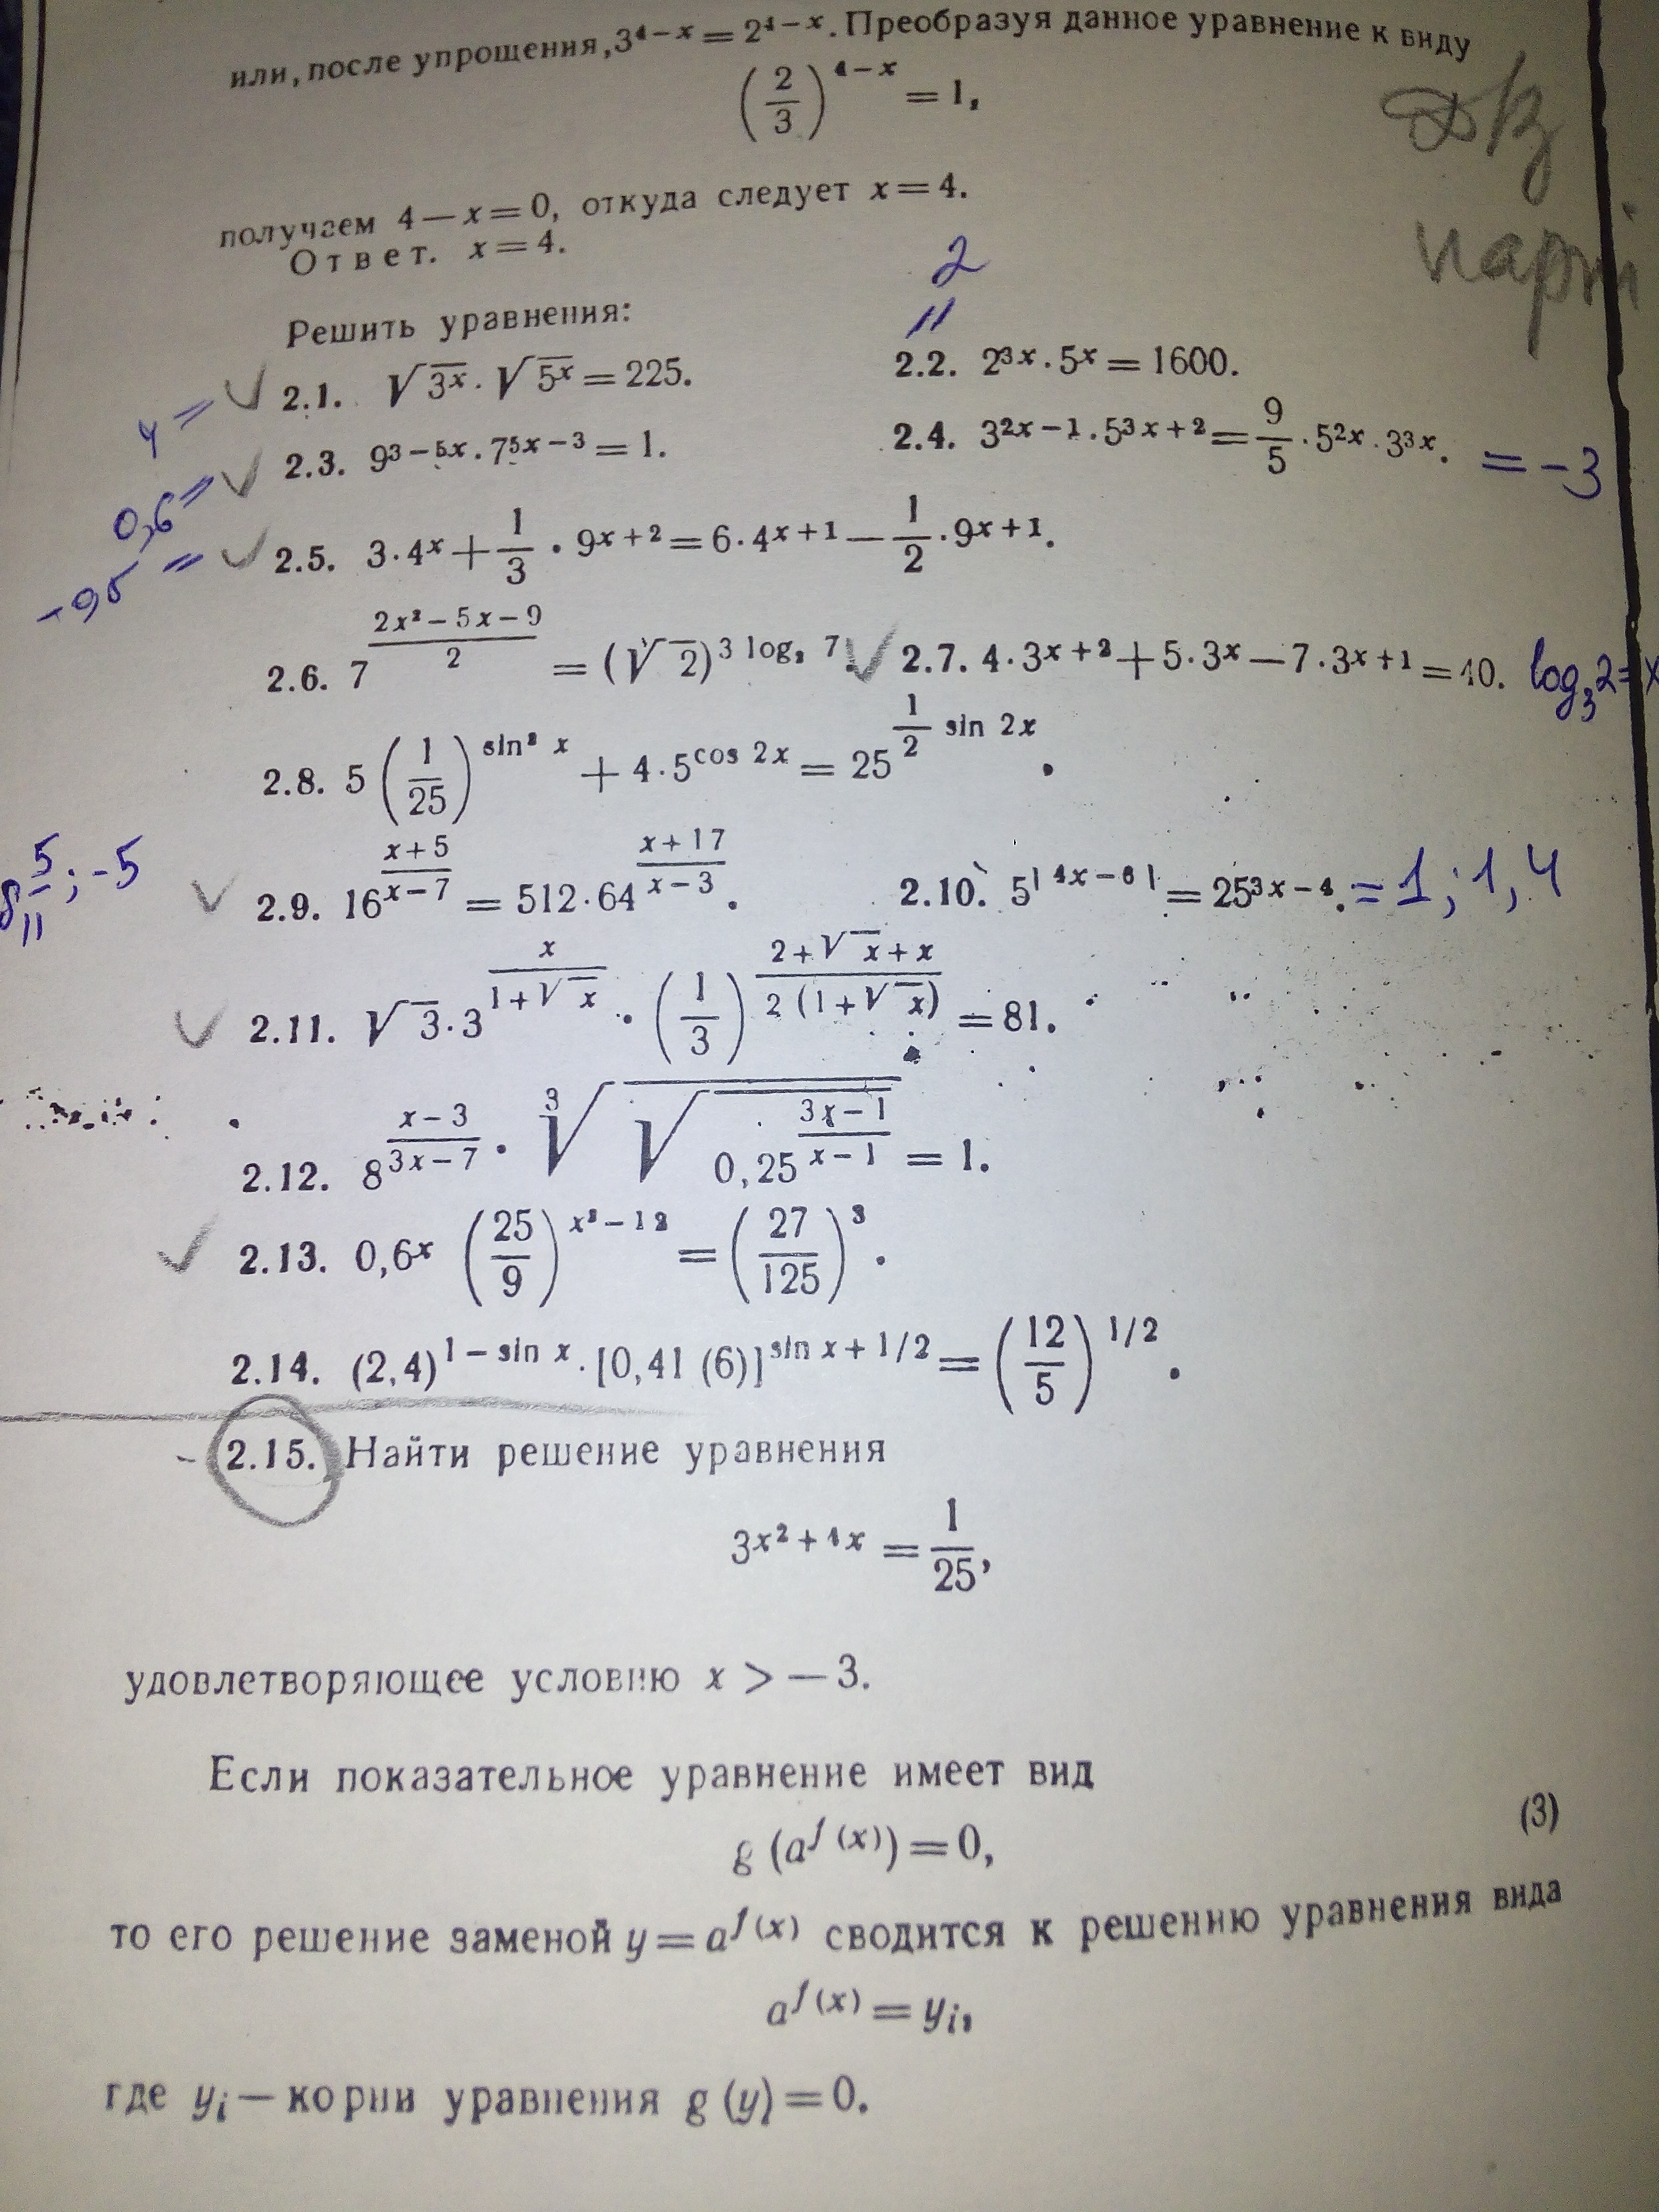 или, после упрощения, 3⁴⁻ˣ = 2⁴⁻ˣ. Преобразуя данное уравнение к виду
(2/3)⁴⁻ˣ = 1,
ДЗ
парні
получаем 4 — x = 0, откуда следует x = 4.
Ответ. x = 4.
Решить уравнения:
4 = ✓ 2.1. √3ˣ · √5ˣ = 225.
2 = 2.2. 2³ˣ · 5ˣ = 1600.
0,6 = ✓ 2.3. 9³⁻⁵ˣ · 7⁵ˣ⁻³ = 1.
2.4. 3²ˣ⁻¹ · 5³ˣ⁺² = 9/5 · 5²ˣ · 3³ˣ. = -3
= ✓ 2.5. 3 · 4ˣ + 1/3 · 9ˣ⁺² = 6 · 4ˣ⁺¹ — 1/2 · 9ˣ⁺¹.
2.6. 7^((2x² – 5x – 9)/2) = (√2)^(3 log₂ 7).
✓ 2.7. 4 · 3ˣ⁺² + 5 · 3ˣ — 7 · 3ˣ⁺¹ = 40. log₃2 = x
2.8. 5 (1/25)^(sin² x) + 4 · 5^(cos 2x) = 25^(1/2 sin 2x).
5; -5
✓ 2.9. 16^((x+5)/(x–7)) = 512 · 64^((x+17)/(x–3)).
2.10. 5^|4x–6| = 25^(3x–4). = 1; 1,4
✓ 2.11. √3 · 3^(x/(1+√x)) · (1/3)^((2+√x+x)/(2(1+√x))) = 81.
2.12. 8^((x–3)/(3x–7)) · ∛(√(0,25^((3x–1)/(x–1)))) = 1.
✓ 2.13. 0,6ˣ (25/9)^(x²–12) = (27/125)³.
2.14. (2,4)^(1 – sin x) · [0,41 (6)]^(sin x + 1/2) = (12/5)^(1/2).
2.15. Найти решение уравнения
3^(x² + 4x) = 1/25,
удовлетворяющее условию x > — 3.
Если показательное уравнение имеет вид
g (a^f(x)) = 0, (3)
то его решение заменой y = a^f(x) сводится к решению уравнения вида
a^f(x) = yᵢ,
где yᵢ — корни уравнения g (y) = 0.